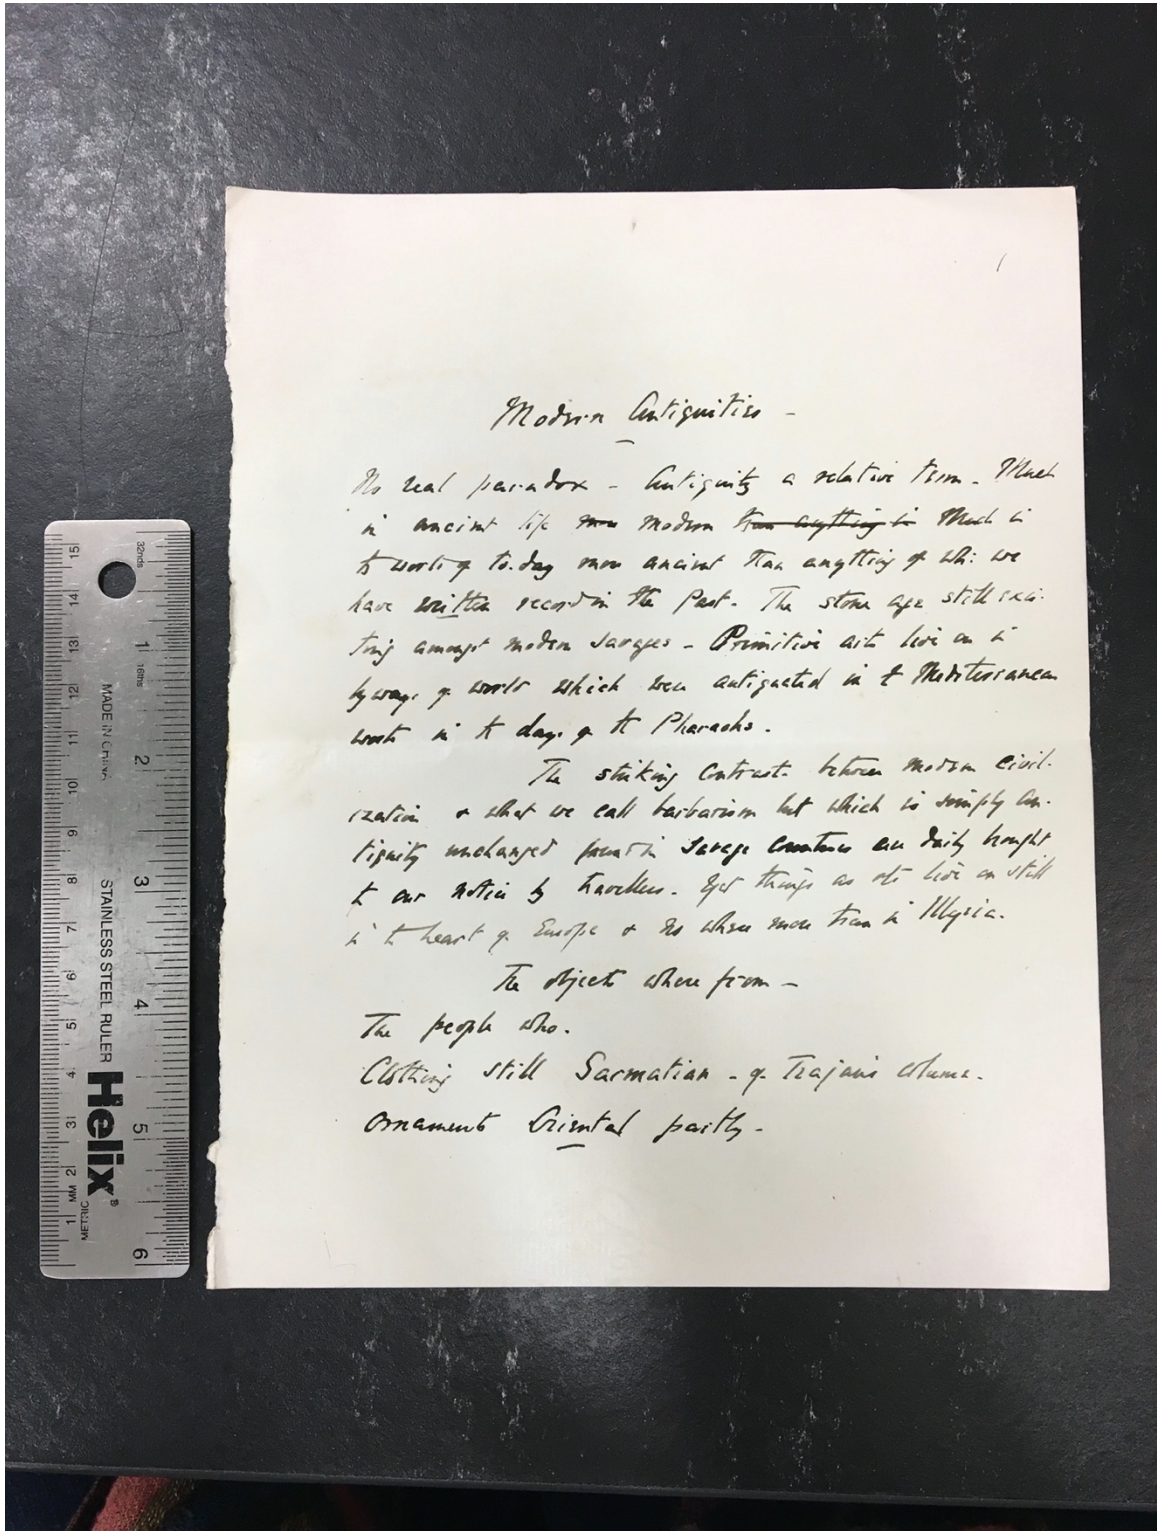 1
Modern Antiquities -
No real paradox - Antiquity a relative term - Much
in ancient life more modern than anything in Much in
to day more ancient than anything of whi: we
have written record in the Past - The stone age still exis-
ting amongst modern savages - Primitive arts live on in
byways of world which were antiquated in t Mediterranean
world in th days of th Pharaohs.
The striking contrast between modern civil-
ization & what we call barbarism but which is simply An-
tiquity unchanged found in savage countries are daily brought
t our notice by travellers. Yet things as old live on still
in th heart of Europe & no where more than in Illyria.
The objects where from -
The people who.
Clothing still Sarmatian - cf Trajan's column -
Ornaments Oriental partly -
32nds
16ths
1
2
3
4
5
6
15
14
13
12
11
10
9
8
7
6
5
4
3
2
1
MADE IN CHINA
STAINLESS STEEL RULER
Helix®
MM
METRIC